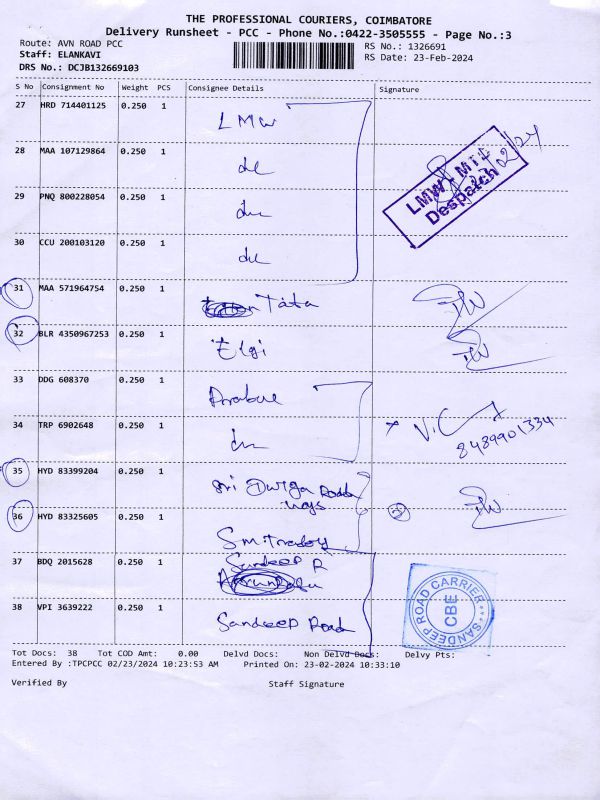 THE PROFESSIONAL COURIERS, COIMBATORE
Delivery Runsheet - PCC - Phone No.:0422-3505555 - Page No.:3
Route: AVN ROAD PCC
RS No.: 1326691
Staff: ELANKAVI
RS Date: 23-Feb-2024
DRS No.: DCJB132669103
S No Consignment No Weight PCS Consignee Details Signature
27 HRD 714401125 0.250 1 LMW
28 MAA 107129864 0.250 1
LMW - MTI
Despatch
29 PNQ 800228054 0.250 1
30 CCU 200103120 0.250 1
31 MAA 571964754 0.250 1 Tata
32 BLR 4350967253 0.250 1 Elgi
33 DDG 608370 0.250 1
34 TRP 6902648 0.250 1
8489901334
35 HYD 83399204 0.250 1 Sri Durga Road
ways
36 HYD 83325605 0.250 1
37 BDQ 2015628 0.250 1 Sandeep R
38 VPI 3639222 0.250 1 Sandeep Road
SANDEEP ROAD CARRIER
CBE
Tot Docs: 38 Tot COD Amt: 0.00 Delvd Docs: Non Delvd Docs: Delvy Pts: -
Entered By :TPCPCC 02/23/2024 10:23:53 AM Printed On: 23-02-2024 10:33:10
Verified By Staff Signature